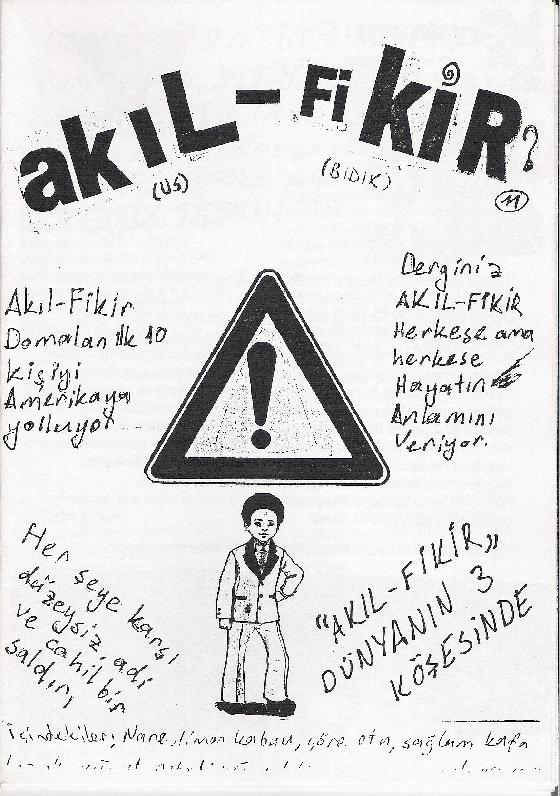 akIL-FiKİR?
(US)
(BIDIK)
11
Akıl-Fikir
Domalan ilk 10
kişiyi
Amerikaya
yolluyor
Derginiz
AKIL-FİKİR
Herkese ama
herkese
Hayatın
Anlamını
Veriyor.
!
Her şeye karşı
düzeysiz, adi
ve cahil bir
saldırı
"AKIL-FİKİR"
DÜNYANIN 3
KÖŞESİNDE
İçindekiler, Nane, limon kabuu, çöre otu, sağlam kafa